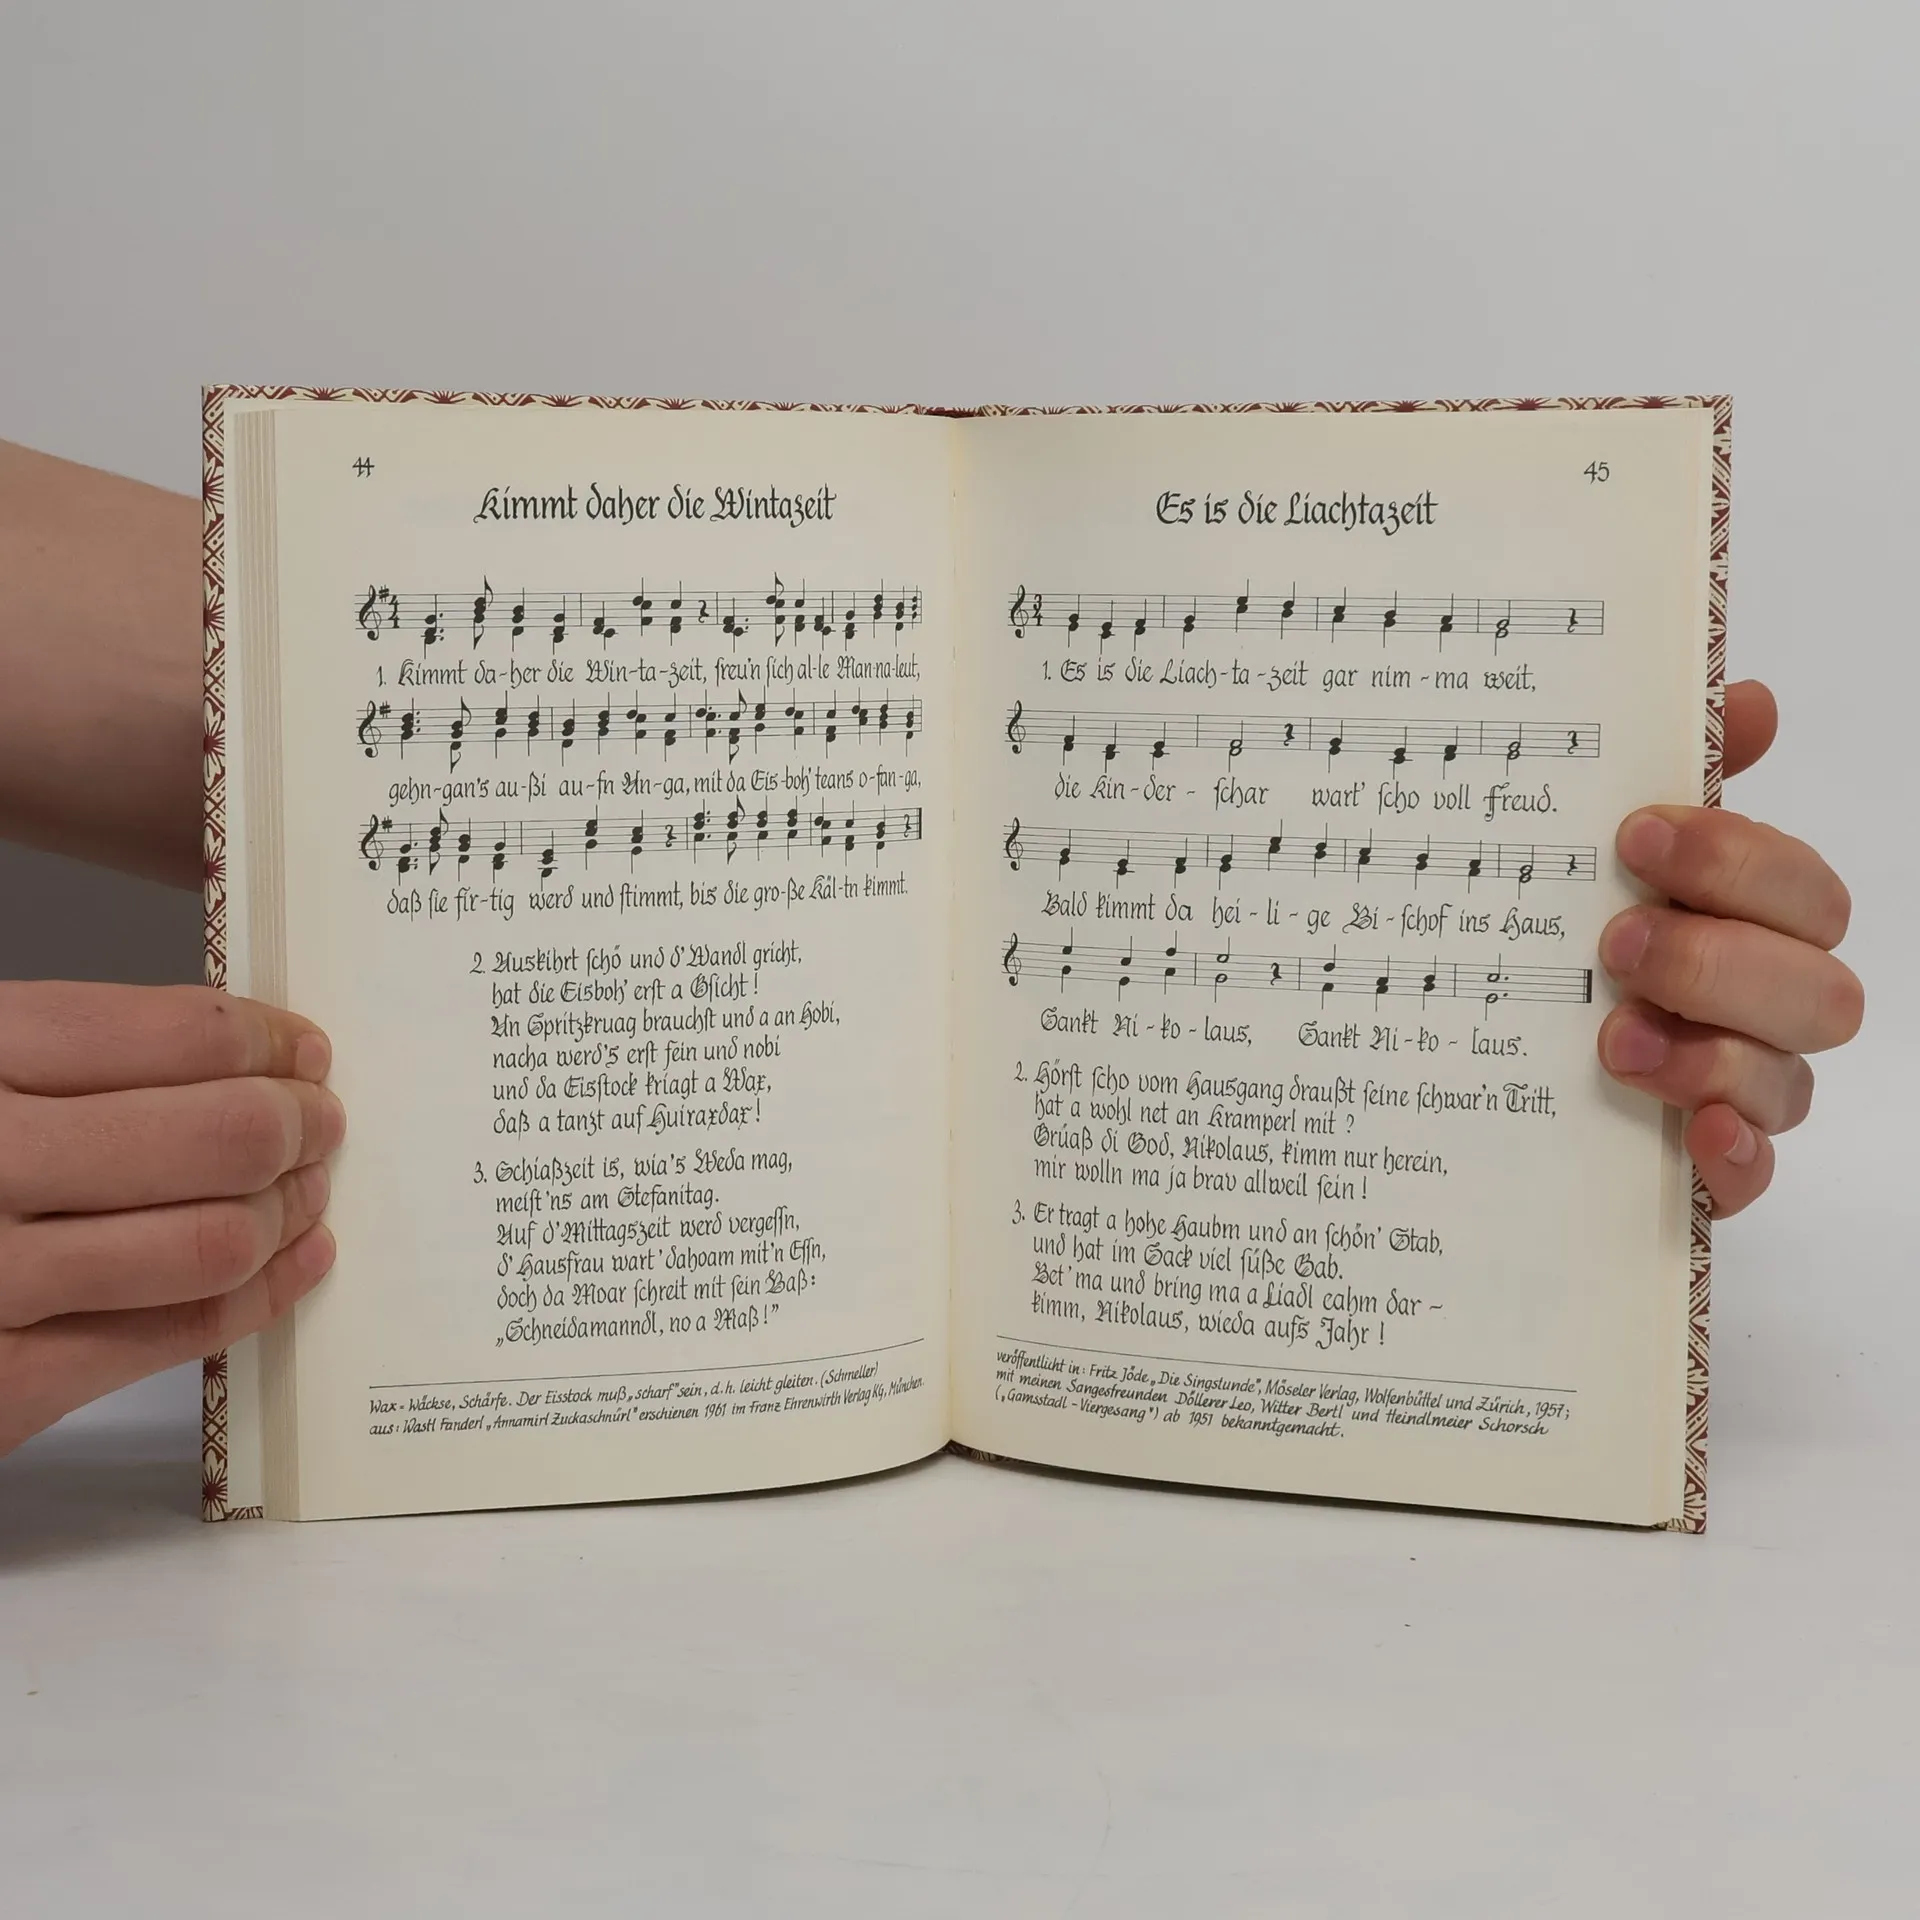 44
Kimmt daher die Wintazeit
1. Kimmt da-her die Win-ta-zeit, freu'n sich al-le Man-na-leut,
gehn-gan's au-ßi au-fn An-ga, mit da Eis-boh' teans o-fan-ga,
daß sie fir-tig werd und stimmt, bis die gro-ße Käl-tn kimmt.
2. Auskihrt schö und d'Wandl gricht,
hat die Eisboh' erst a Gsicht!
An Spritzkruag brauchst und a an Hobi,
nacha werd's erst fein und nobi
und da Eisstock kriagt a Wax,
daß a tanzt auf Huiraxdax!
3. Schiaßzeit is, wia's Weda mag,
meist'ns am Stefanitag.
Auf d'Mittagszeit werd vergessn,
d'Hausfrau wart' dahoam mit'n Essn,
doch da Moar schreit mit sein Baß:
„Schneidamanndl, no a Maß!"
Wax = Wäckse, Schärfe. Der Eisstock muß „scharf" sein, d.h. leicht gleiten. (Schmeller)
aus: Wastl Fanderl „Annamirl Zuckaschnürl" erschienen 1961 im Franz Ehrenwirth Verlag KG, München.
45
Es is die Liachtazeit
1. Es is die Liach-ta-zeit gar nim-ma weit,
die Kin-der-schar wart' scho voll Freud.
Bald kimmt da hei-li-ge Bi-schof ins Haus,
Sankt Ni-ko-laus, Sankt Ni-ko-laus.
2. Hörst scho vom Hausgang draußt seine schwar'n Tritt,
hat a wohl net an Kramperl mit?
Grüaß di God, Nikolaus, kimm nur herein,
mir wolln ma ja brav allweil sein!
3. Er tragt a hohe Haubm und an schön' Stab,
und hat im Sack viel süße Gab.
Bet' ma und bring ma a Liadl eahm dar -
kimm, Nikolaus, wieda aufs Jahr!
veröffentlicht in: Fritz Jöde „Die Singstunde", Möseler Verlag, Wolfenbüttel und Zürich, 1957;
mit meinen Sangesfreunden Döllerer Leo, Witter Bertl und Heindlmeier Schorsch
(„Gamsstadl-Viergesang") ab 1951 bekanntgemacht.